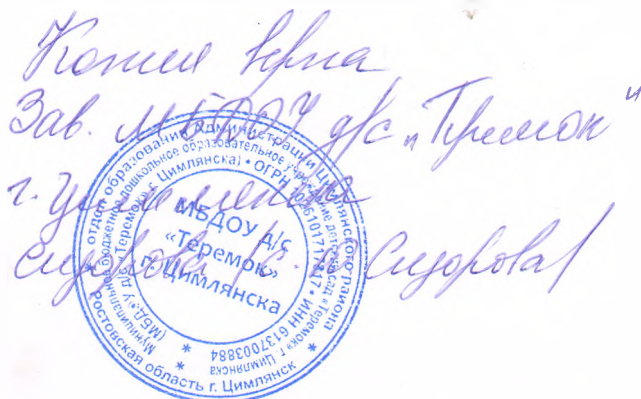 Копия верна
Зав. МБДОУ д/с „Теремок"
г. Цимлянска
Сидорова / Сидорова/
отдел образования Администрации Цимлянского района
Ростовская область г. Цимлянск
Муниципальное бюджетное дошкольное образовательное учреждение детский сад «Теремок» г. Цимлянска
(МБДОУ д/с «Теремок» г. Цимлянска) • ОГРН • ИНН 6137003884
МБДОУ д/с
«Теремок»
г. Цимлянска